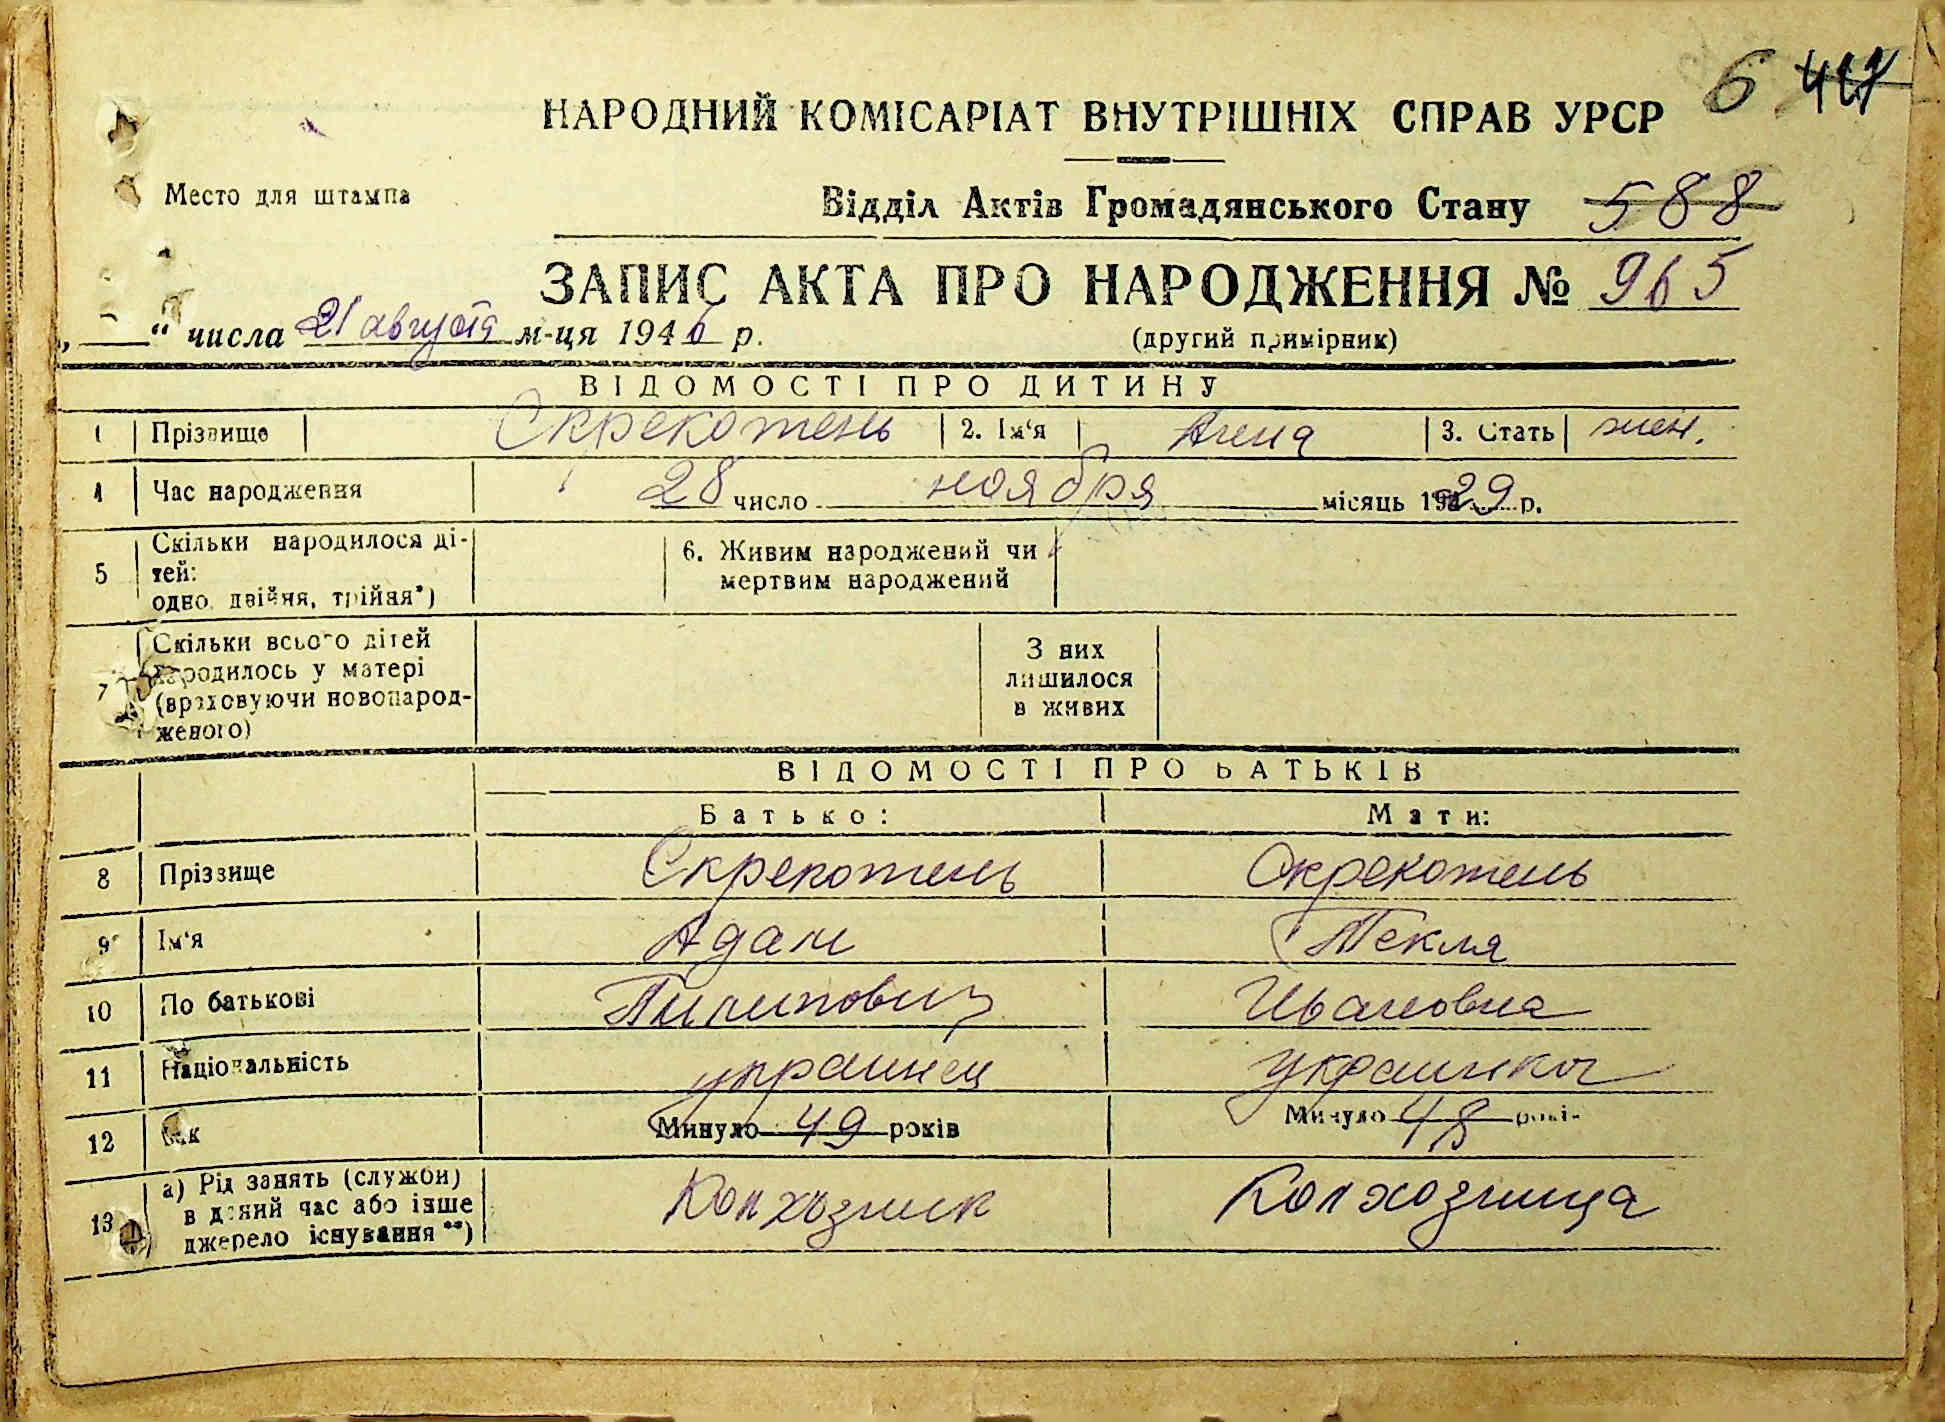 6 447
НАРОДНИЙ КОМІСАРІАТ ВНУТРІШНІХ СПРАВ УРСР
Место для штампа
Відділ Актів Громадянського Стану 588
ЗАПИС АКТА ПРО НАРОДЖЕННЯ № 965
„ “ числа 21 августа м-ця 1946 р.
(другий примірник)
ВІДОМОСТІ ПРО ДИТИНУ
1 Прізвище Скрекотень 2. Ім‘я Агена 3. Стать жен.
4 Час народження 28 число ноября місяць 1929 р.
5 Скільки народилося ді-
тей:
одно, двійня, трійня*)
6. Живим народжений чи
мертвим народжений
7 Скільки всього дітей
народилось у матері
(враховуючи новонарод-
женого)
З них
лишилося
в живих
ВІДОМОСТІ ПРО БАТЬКІВ
Батько: Мати:
8 Прізвище Скрекотень Скрекотень
9 Ім‘я Адам Текля
10 По батькові Пилипович Ивановна
11 Національність украинец украинка
12 Вік Минуло 49 років Минуло 48 років
13 а) Рід занять (служби)
в даний час або інше
джерело існування **)
Колхозник Колхозница